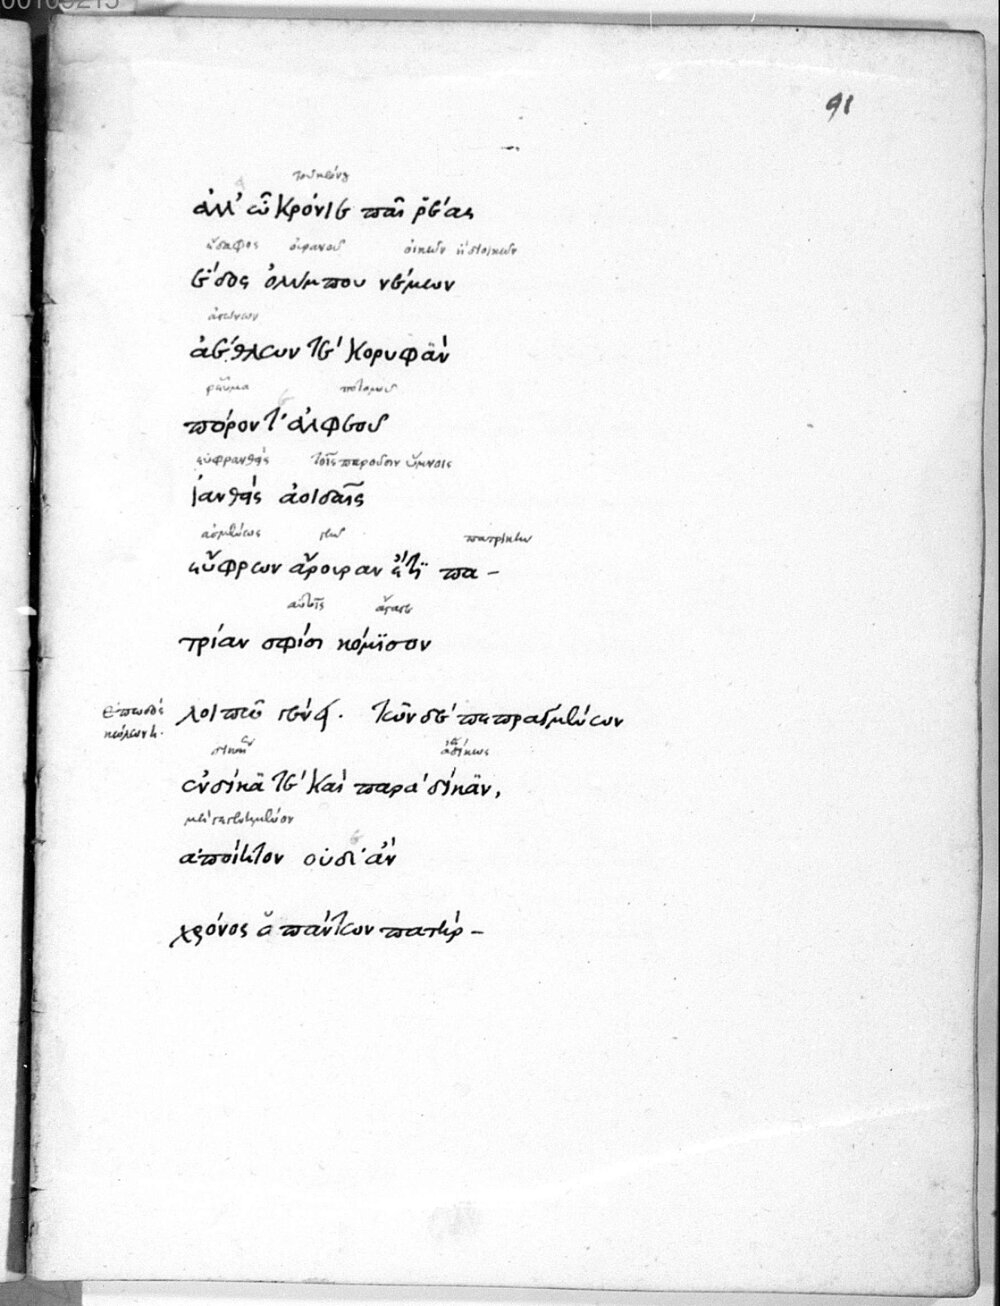 91
τοῦ κρόνου
ἀλλ' ὦ κρόνιε παῖ ῥέας
ἔδαφος οὐρανοῦ οἰκῶν ἢ διοικῶν
ἕδος ὀλύμπου νέμων
ἀγώνων
ἀέθλων τε κορυφὰν
ῥεῦμα ποταμοῦ
πόρον τ' ἀλφεοῦ
εὐφρανθεὶς τοῖς παροῦσιν ὕμνοις
ἰανθεὶς ἀοιδαῖς
ἀσμένως γῆν πατρικὴν
εὔφρων ἄρουραν ἔτι πα-
αὐτοῖς
τρίαν σφίσι κόμισον
ἐπωδὸς
κώλων
λοιπῷ γένει. τῶν δὲ πεπραγμένων
ἀδίκως
ἐν δίκᾳ τε καὶ παρὰ δίκαν,
ἀποίητον οὐδ' ἂν
χρόνος ὁ πάντων πατὴρ-